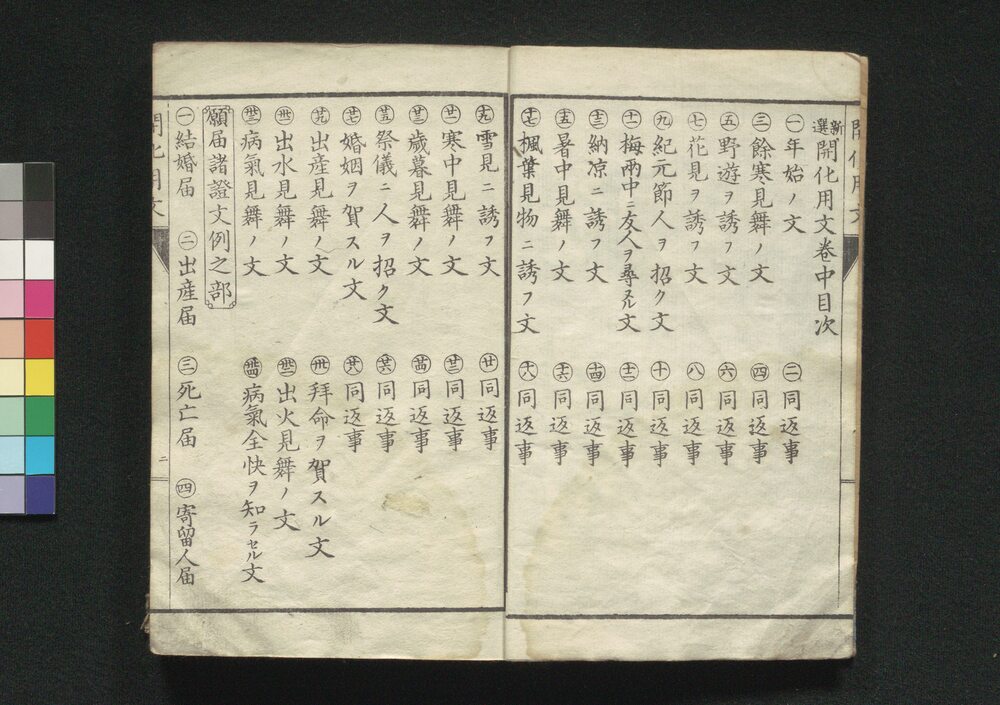 新選開化用文巻中目次
㊀年始ノ文 ㊁同返事
㊂餘寒見舞ノ文 ㊃同返事
㊄野遊ヲ誘フ文 ㊅同返事
㊆花見ヲ誘フ文 ㊇同返事
㊈紀元節人ヲ招ク文 ㊉同返事
十一梅雨中ニ友人ヲ尋ヌル文 十二同返事
十三納凉ニ誘フ文 十四同返事
十五暑中見舞ノ文 十六同返事
十七楓葉見物ニ誘フ文 十八同返事
十九雪見ニ誘フ文 廿同返事
廿一寒中見舞ノ文 廿二同返事
廿三歳暮見舞ノ文 廿四同返事
廿五祭儀ニ人ヲ招ク文 廿六同返事
廿七婚姻ヲ賀スル文 廿八同返事
廿九出産見舞ノ文 卅拜命ヲ賀スル文
卅一出水見舞ノ文 卅二出火見舞ノ文
卅三病氣見舞ノ文 卅四病氣全快ヲ知ラセル文
願届諸證文例之部
㊀結婚届 ㊁出産届 ㊂死亡届 ㊃寄留人届
開化用文
二